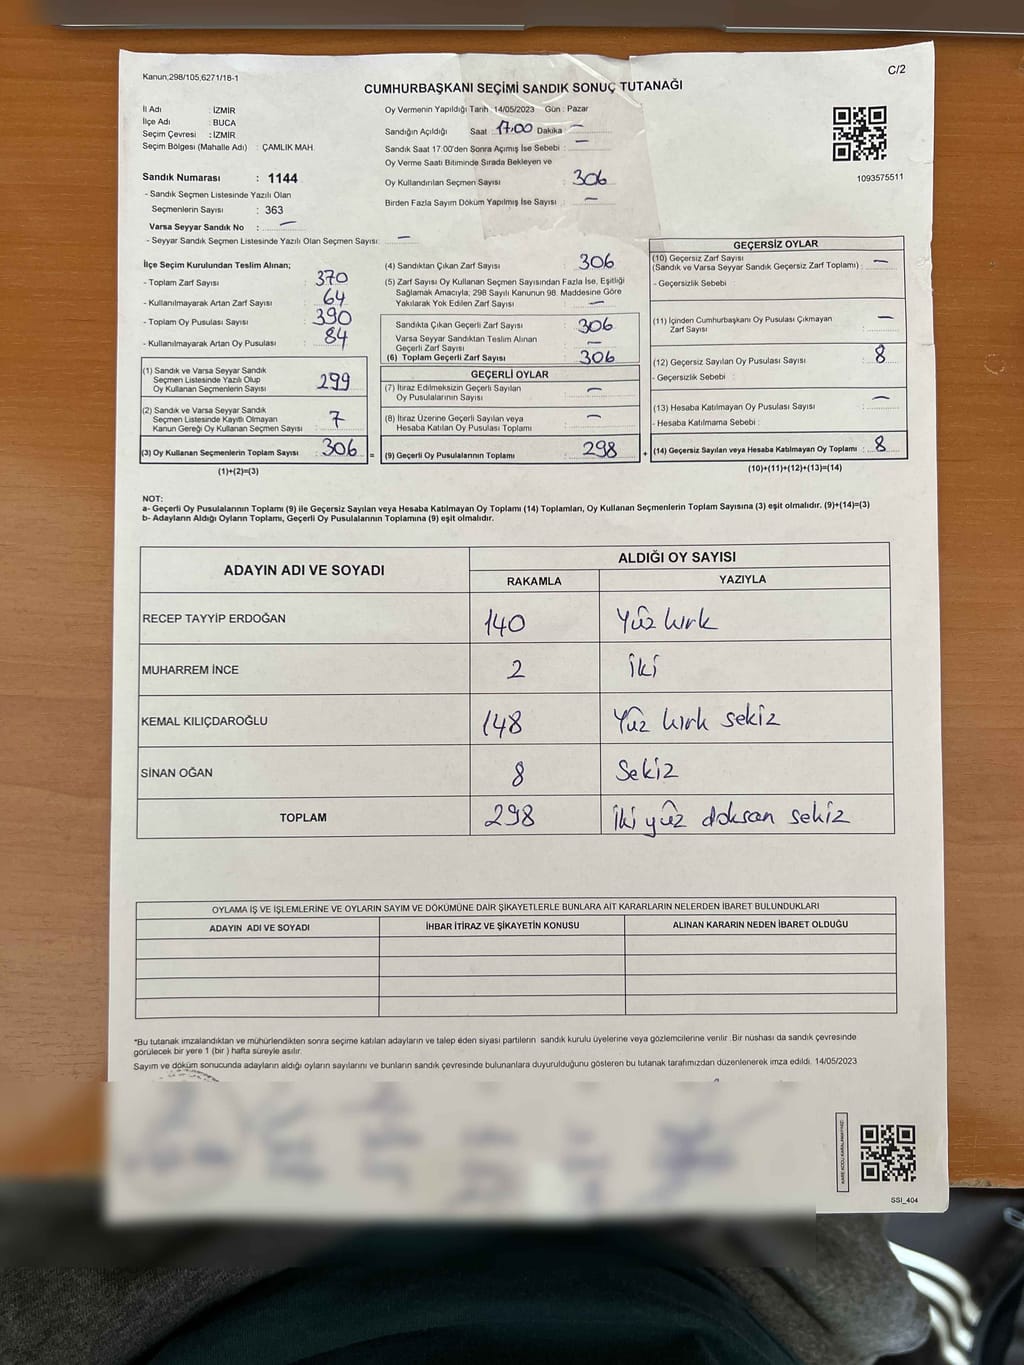 Kanun,298/105,6271/18-1
C/2
CUMHURBAŞKANI SEÇİMİ SANDIK SONUÇ TUTANAĞI
İl Adı : İZMİR
İlçe Adı : BUCA
Seçim Çevresi : İZMİR
Seçim Bölgesi (Mahalle Adı) : ÇAMLIK MAH.
Sandık Numarası : 1144
- Sandık Seçmen Listesinde Yazılı Olan
Seçmenlerin Sayısı : 363
Varsa Seyyar Sandık No : —
- Seyyar Sandık Seçmen Listesinde Yazılı Olan Seçmen Sayısı: —
Oy Vermenin Yapıldığı Tarih :14/05/2023 Gün : Pazar
Sandığın Açıldığı Saat : 17:00 Dakika —
Sandık Saat 17.00'den Sonra Açımış İse Sebebi : —
Oy Verme Saati Bitiminde Sırada Bekleyen ve
Oy Kullandırılan Seçmen Sayısı : 306
Birden Fazla Sayım Döküm Yapılmış İse Sayısı : —
1093575511
İlçe Seçim Kurulundan Teslim Alınan;
- Toplam Zarf Sayısı : 370
- Kullanılmayarak Artan Zarf Sayısı : 64
- Toplam Oy Pusulası Sayısı : 390
- Kullanılmayarak Artan Oy Pusulası : 84
(1) Sandık ve Varsa Seyyar Sandık
Seçmen Listesinde Yazılı Olup
Oy Kullanan Seçmenlerin Sayısı : 299
(2) Sandık ve Varsa Seyyar Sandık
Seçmen Listesinde Kayıtlı Olmayan
Kanun Gereği Oy Kullanan Seçmen Sayısı : 7
(3) Oy Kullanan Seçmenlerin Toplam Sayısı : 306 =
(1)+(2)=(3)
(4) Sandıktan Çıkan Zarf Sayısı : 306
(5) Zarf Sayısı Oy Kullanan Seçmen Sayısından Fazla İse, Eşitliği
Sağlamak Amacıyla; 298 Sayılı Kanunun 98. Maddesine Göre
Yakılarak Yok Edilen Zarf Sayısı : —
Sandıkta Çıkan Geçerli Zarf Sayısı : 306
Varsa Seyyar Sandıktan Teslim Alınan
Geçerli Zarf Sayısı : —
(6) Toplam Geçerli Zarf Sayısı : 306
GEÇERLİ OYLAR
(7) İtiraz Edilmeksizin Geçerli Sayılan
Oy Pusulalarının Sayısı : —
(8) İtiraz Üzerine Geçerli Sayılan veya
Hesaba Katılan Oy Pusulası Toplamı : —
(9) Geçerli Oy Pusulalarının Toplamı : 298 +
GEÇERSİZ OYLAR
(10) Geçersiz Zarf Sayısı
(Sandık ve Varsa Seyyar Sandık Geçersiz Zarf Toplamı) : —
- Geçersizlik Sebebi :
(11) İçinden Cumhurbaşkanı Oy Pusulası Çıkmayan
Zarf Sayısı : —
(12) Geçersiz Sayılan Oy Pusulası Sayısı : 8
- Geçersizlik Sebebi :
(13) Hesaba Katılmayan Oy Pusulası Sayısı : —
- Hesaba Katılmama Sebebi :
(14) Geçersiz Sayılan veya Hesaba Katılmayan Oy Toplamı : 8
(10)+(11)+(12)+(13)=(14)
NOT:
a- Geçerli Oy Pusulalarının Toplamı (9) ile Geçersiz Sayılan veya Hesaba Katılmayan Oy Toplamı (14) Toplamları, Oy Kullanan Seçmenlerin Toplam Sayısına (3) eşit olmalıdır. (9)+(14)=(3)
b- Adayların Aldığı Oyların Toplamı, Geçerli Oy Pusulalarının Toplamına (9) eşit olmalıdır.
ADAYIN ADI VE SOYADI
ALDIĞI OY SAYISI
RAKAMLA YAZIYLA
RECEP TAYYİP ERDOĞAN 140 Yüz kırk
MUHARREM İNCE 2 iki
KEMAL KILIÇDAROĞLU 148 Yüz kırk sekiz
SİNAN OĞAN 8 Sekiz
TOPLAM 298 iki yüz doksan sekiz
OYLAMA İŞ VE İŞLEMLERİNE VE OYLARIN SAYIM VE DÖKÜMÜNE DAİR ŞİKAYETLERLE BUNLARA AİT KARARLARIN NELERDEN İBARET BULUNDUKLARI
ADAYIN ADI VE SOYADI İHBAR İTİRAZ VE ŞİKAYETİN KONUSU ALINAN KARARIN NEDEN İBARET OLDUĞU
*Bu tutanak imzalandıktan ve mühürlendikten sonra seçime katılan adayların ve talep eden siyasi partilerin sandık kurulu üyelerine veya gözlemcilerine verilir .Bir nüshası da sandık çevresinde
görülecek bir yere 1 (bir ) hafta süreyle asılır.
Sayım ve döküm sonucunda adayların aldığı oyların sayılarını ve bunların sandık çevresinde bulunanlara duyurulduğunu gösteren bu tutanak tarafımızdan düzenlenerek imza edildi. 14/05/2023
SSI_404